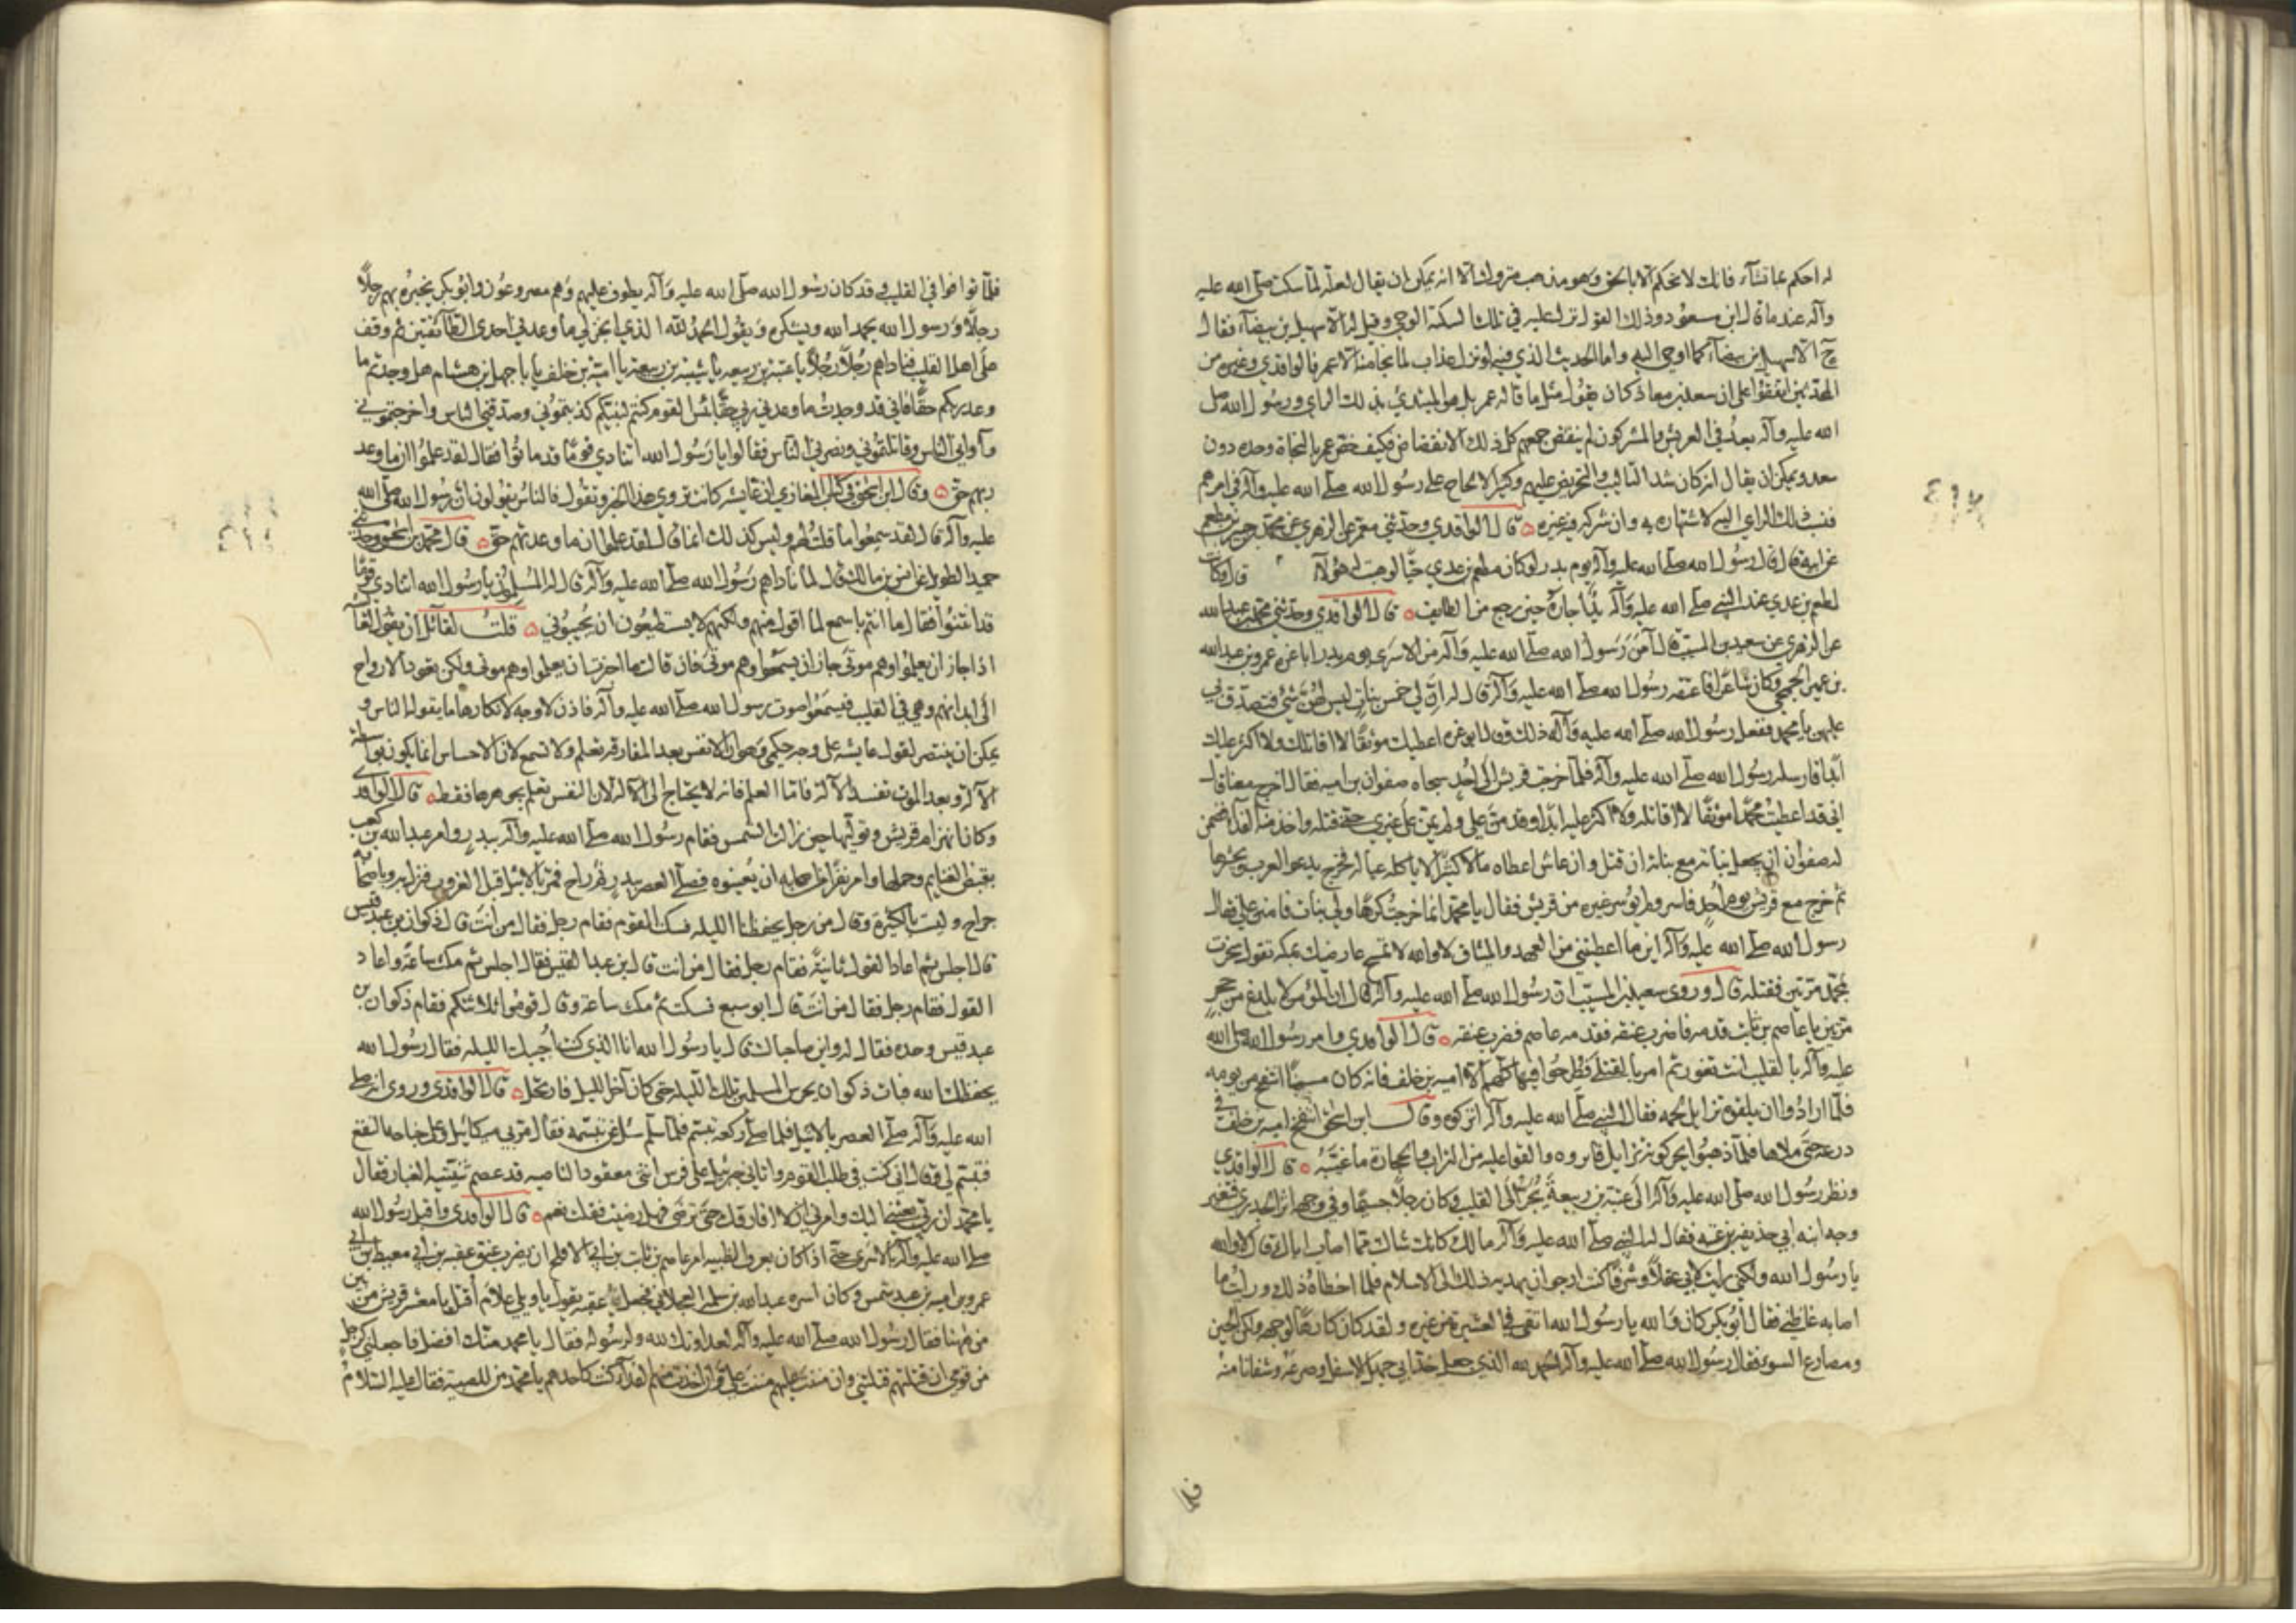 له احكم بما تشآء فانك لا تحكم الا بالحق وهو مذهب متروك الا انه يمكن ان يقال لعله لما سكت صلى الله عليه
وآله عندما قال ابن مسعود ذلك القول نزل عليه في تلك السكتة الوحي وقيل له الا سهيل بن بيضآء فقال
ح الا سهيل بن بيضآء كما اوحي اليه واما الحديث الذي فيه لو نزل عذاب لما نجا منه الا عمر فالواقدي وغيره من
المحدثين اتفقوا على ان سعد بن معاذ كان يقول مثل ما قاله عمر بل هو المبتدئ بذلك الراي ورسول الله صلى
الله عليه وآله بعد في العريش والمشركون لم ينفض جمعهم كل ذلك الانفضاض فكيف خص عمر بالنجاة وحده دون
سعد ويمكن ان يقال انه كان شديد التاليب والتحريض عليهم وكثير الالحاح على رسول الله صلى الله عليه وآله في امرهم
فنسب ذلك الراي اليه لاشتهاره به وان شركه فيه غيره ۞ قال الواقدي وحدثني معمر عن الزهري عن محمد بن جبير بن مطعم
عن ابيه قال قال رسول الله صلى الله عليه وآله يوم بدر لو كان مطعم بن عدي حيا لوهبت له هولآ قال وكانت
لمطعم بن عدي عند النبي صلى الله عليه وآله يد اجاره حين رجع من الطايف ۞ قال الواقدي وحدثني محمد بن عبد الله
عن الزهري عن سعيد بن المسيب قال آمن رسول الله صلى الله عليه وآله من الاسرى يوم بدر ابا عزه عمرو بن عبد الله
بن عمير الجمحي وكان شاعرا فاعتقه رسول الله صلى الله عليه وآله قال له ان لي خمس بنات ليس لهن شيء فتصدق بي
عليهن يا محمد ففعل رسول الله صلى الله عليه وآله ذلك وقال ابو عزه اعطيك موثقا لا اقاتلك ولا اكثر عليك
ابدا فارسله رسول الله صلى الله عليه وآله فلما خرجت قريش الى احد جاه صفوان بن اميه فقال اخرج معنا قال
اني قد اعطيت محمدا موثقا لا اقاتله ولا اكثر عليه ابدا وقد من علي ولم يمن على غيري حتى قتله واخذ منه الفدآ فضمن
له صفوان ان يجعل بناته مع بناته ان قتل وان عاش اعطاه مالا كثيرا لا ياكله عياله فخرج يدعوا العرب ويحشرها
ثم خرج مع قريش يوم احد فاسر ولم يوسر غيره من قريش فقال يا محمد انما خرجت كرها ولي بنات فامنن علي فقال
رسول الله صلى الله عليه وآله اين ما اعطيتني من العهد والميثاق لا والله لا تمسح عارضيك بمكه تقول سخرت
بمحمد مرتين فقتله قال وروى سعيد بن المسيب ان رسول الله صلى الله عليه وآله قال ان المؤمن لا يلدغ من جحر
مرتين يا عاصم بن ثابت قدمه فاضرب عنقه فقدمه عاصم فضرب عنقه ۞ قال الواقدي وامر رسول الله صلى الله
عليه وآله بالقليب ان تغور ثم امر بالقتلى فطرحوا فيها كلهم الا اميه بن خلف فانه كان مسمنا انتفخ من يومه
فلما ارادوا ان يلقوه تزايل لحمه فقال النبي صلى الله عليه وآله اتركوه وقال ابن اسحق انتفخ اميه بن خلف في
درعه حتى ملاها فلما ذهبوا يحركونه تزايل فاقروه والقوا عليه من التراب والحجارة ما غيبه ۞ قال الواقدي
ونظر رسول الله صلى الله عليه وآله الى عتبة بن ربيعة يجر الى القليب وكان رجلا جسيما وفي وجهه اثر الجدري فتغير
وجه ابنه ابي حذيفه بن عتبه فقال له النبي صلى الله عليه وآله ما لك كانك شاك مما اصاب اباك قال لا والله
يا رسول الله ولكني رايت لابي عقلا وشرفا كنت ارجو ان يهديه ذلك الى الاسلام فلما اخطاه ذلك ورايت ما
اصابه غاظني فقال ابو بكر كان والله يا رسول الله ابقى في العشيرة من غيره ولقد كان كارها لوجهه ولكن الحين
ومصارع السوء فقال رسول الله صلى الله عليه وآله الحمد لله الذي جعل خد ابي جهل الاسفل وصرعه وشفانا منه
فلما
فلما توافوا في القليب وقد كان رسول الله صلى الله عليه وآله يطوف عليهم وهم مصروعون وابو بكر يخبره بهم رجلا
رجلا ورسول الله يحمد الله ويشكره ويقول الحمد لله الذي انجز لي ما وعدني احدى الطآئفتين ثم وقف
على اهل القليب فناداهم رجلا رجلا يا عتبة بن ربيعه يا شيبة بن ربيعة يا امية بن خلف يا ابا جهل بن هشام هل وجدتم ما
وعد ربكم حقا فاني قد وجدت ما وعدني ربي حقا بئس القوم كنتم لنبيكم كذبتموني وصدقني الناس واخرجتموني
وآواني الناس وقاتلتموني ونصرني الناس فقالوا يا رسول الله اتنادي قوما قد ماتوا فقال لقد علموا ان ما وعد
ربهم حق ۞ وقال ابن اسحق في كتاب المغازي ان عايشه كانت تروي هذا الخبر وتقول فالناس يقولون ان رسول الله صلى الله
عليه وآله قال لقد سمعوا ما قلت لهم وليس كذلك انما قال لقد علموا ان ما وعدتهم حق ۞ قال محمد بن اسحق وحدثني
حميد الطويل عن انس بن مالك قال لما ناداهم رسول الله صلى الله عليه وآله قال له المسلمون يا رسول الله اتنادي قوما
قد انتنوا فقال ما انتم باسمع لما اقول منهم ولكنهم لا يستطيعون ان يجيبوني ۞ قلت لقائل ان يقول لها
اذا جاز ان يعلموا وهم موتى جاز ان يسمعوا وهم موتى فان قالت ما اخبرت ان يعلموا وهم موتى ولكن تعود الارواح
الى ابدانهم وهي في القليب فيسمعوا صوت رسول الله صلى الله عليه وآله فاذن لا وجه لانكارها ما يقوله الناس و
يمكن ان ينتصر لقول عايشه على وجه حكمي وهو ان الانفس بعد المفارقه تعلم ولا تسمع لان الاحساس انما يكون بواسطة
الآلة وبعد الموت تفسد الآلة فاما العلم فانه لا يحتاج الى الآلة لان النفس تعلم بجوهرها فقط ۞ قال الواقدي
وكان انهزام قريش وتوليها حين زالت الشمس فقام رسول الله صلى الله عليه وآله ببدر وامر عبد الله بن كعب
بقبض الغنايم وحملها وامر نفرا من اصحابه ان يعينوه فصلى العصر ببدر ثم راح فمر بالاثيل قبل الغروب فنزل به وباصحابه
جراح وليست بالكثيرة وقال من رجل يحفظنا الليله فسكت القوم فقام رجل فقال من انت قال ذكوان بن عبد قيس
قال اجلس ثم اعاد القول ثانية فقام رجل فقال من انت قال ابن عبد القيس فقال اجلس ثم مكث ساعة واعاد
القول فقام رجل فقال من انت قال ابو سبع فسكت ثم مكث ساعة وقال قوموا ثلاثتكم فقام ذكوان بن
عبد قيس وحده فقال له واين صاحباك قال يا رسول الله انا الذي كنت اجيبك الليله فقال رسول الله
يحفظك الله فبات ذكوان يحرس المسلمين تلك الليله حتى كان آخر الليل فارتحل ۞ قال الواقدي وروي انه صلى
الله عليه وآله صلى العصر بالاثيل فلما صلى ركعه تبسم فلما سلم سئل عن تبسمه فقال مر بي ميكائيل وعلى جناحه النقع
فتبسم لي وقال اني كنت في طلب القوم واتاني جبرئيل على فرس انثى معقود الناصيه قد عصم ثنيتيه الغبار فقال
يا محمد ان ربي بعثني اليك وامرني ان لا افارقك حتى ترضى فهل رضيت فقلت نعم ۞ قال الواقدي واقبل رسول الله
صلى الله عليه وآله بالاسرى حتى اذا كان بعرق الظبيه امر عاصم بن ثابت بن ابي الاقلح ان يضرب عنق عقبه بن ابي معيط بن ابي
عمرو بن اميه بن عبد شمس وكان اسره عبد الله بن سلمه العجلاني فجعل عقبه يقول يا ويلي علام اقتل يا معشر قريش من بين
من هٰهنا فقال رسول الله صلى الله عليه وآله لعداوتك لله ولرسوله فقال يا محمد منك افضل فاجعلني كرجل
من قومي ان قتلتهم قتلتني وان مننت عليهم مننت علي وان اخذت منهم الفدآ كنت كاحدهم يا محمد من للصبية فقال عليه السلام